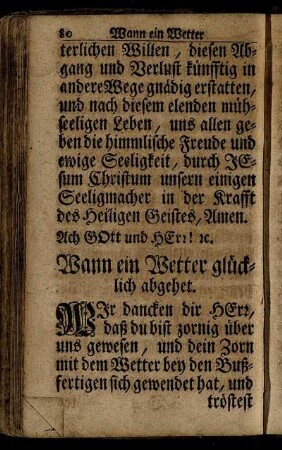 80 Wann ein Wetter
terlichen Willen, diesen Ab-
gang und Verlust künfftig in
andere Wege gnädig erstatten,
und nach diesem elenden müh-
seeligen Leben, uns allen ge-
ben die himmlische Freude und
ewige Seeligkeit, durch JE-
sum Christum unsern einigen
Seeligmacher in der Krafft
des Heiligen Geistes, Amen.
Ach GOtt und HErr! ꝛc.
Wann ein Wetter glück-
lich abgehet.
WJr dancken dir HErr,
daß du bist zornig über
uns gewesen, und dein Zorn
mit dem Wetter bey den Buß-
fertigen sich gewendet hat, und
tröstest